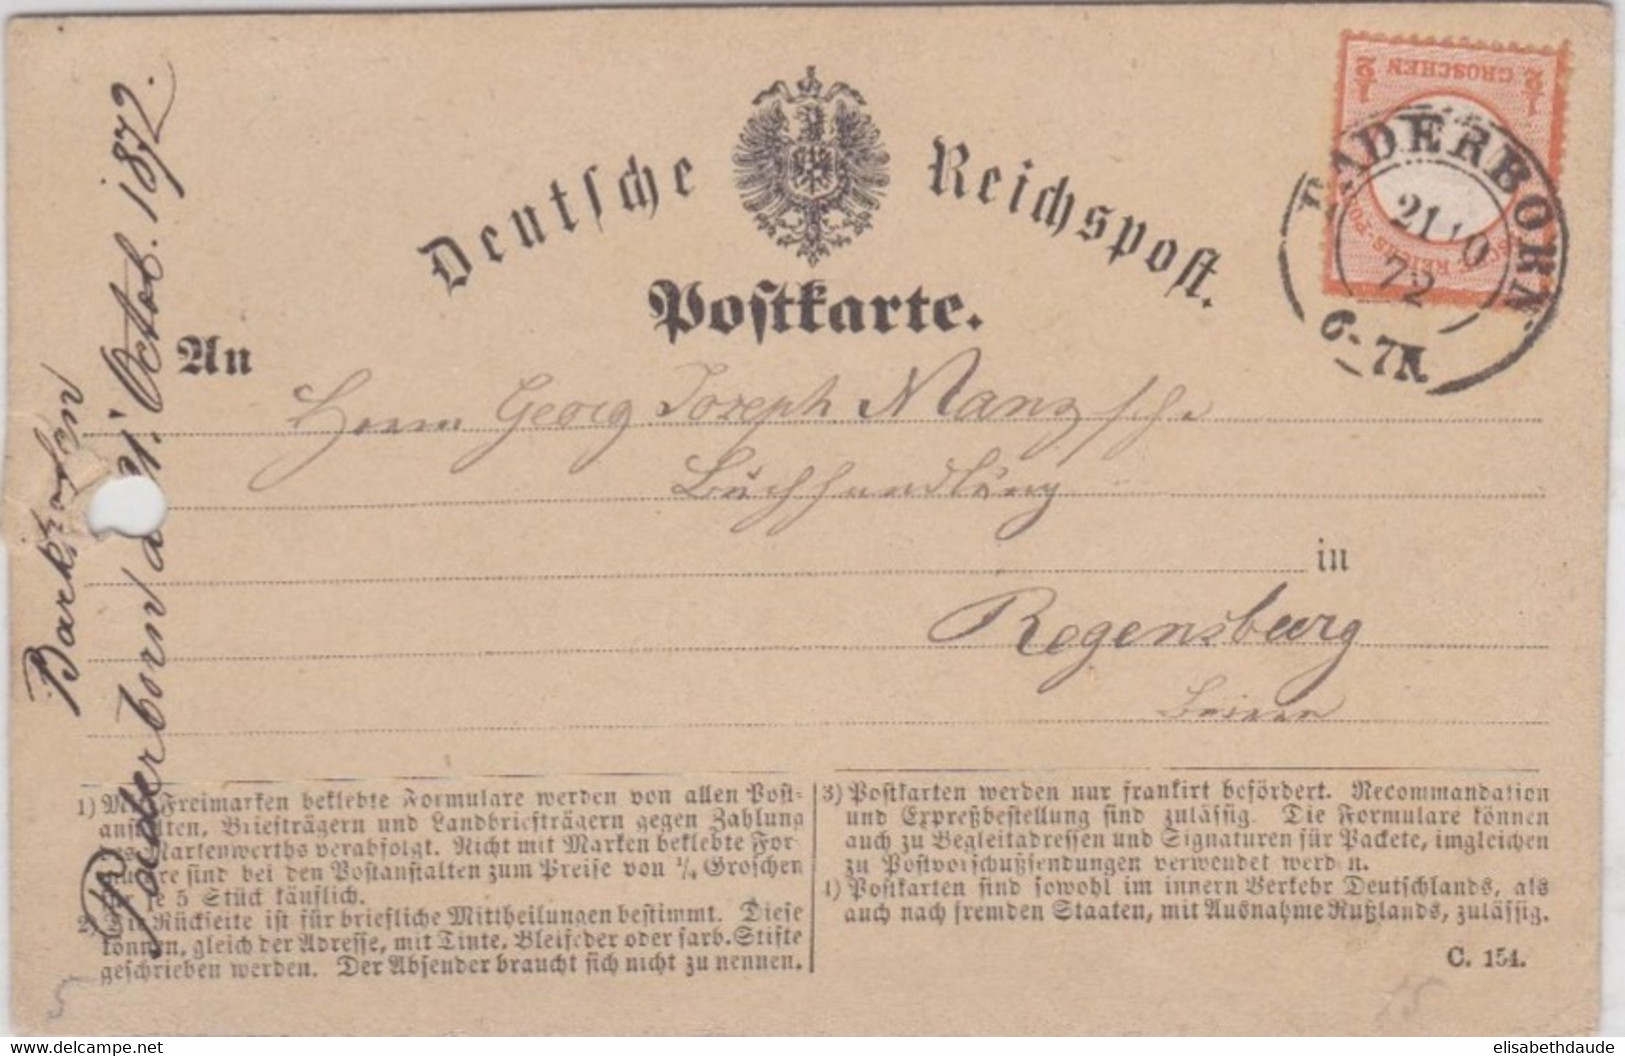 Deutsche Reichspost.
Postkarte.
1/2 GROSCHEN 1/2
PADERBORN
21 10
72
6-7N.
An
Herrn Georg Joseph Manz'sche
Buchhandlung
in
Regensburg
Baiern
Barkhofen
Paderborn d. 21. Octob. 1872.
1) Mit Freimarken beklebte Formulare werden von allen Post-
anstalten, Briefträgern und Landbriefträgern gegen Zahlung
des Markenwerths verabfolgt. Nicht mit Marken beklebte For-
mulare sind bei den Postanstalten zum Preise von 1/4 Groschen
für je 5 Stück käuflich.
2) Die Rückseite ist für briefliche Mittheilungen bestimmt. Diese
können, gleich der Adresse, mit Tinte, Bleifeder oder farb. Stifte
geschrieben werden. Der Absender braucht sich nicht zu nennen.
3) Postkarten werden nur frankirt befördert. Recommandation
und Expreßbestellung sind zulässig. Die Formulare können
auch zu Begleitadressen und Signaturen für Packete, imgleichen
zu Postvorschußsendungen verwendet werden.
4) Postkarten sind sowohl im innern Verkehr Deutschlands, als
auch nach fremden Staaten, mit Ausnahme Rußlands, zulässig.
C. 154.
www.delcampe.net
elisabethdaude